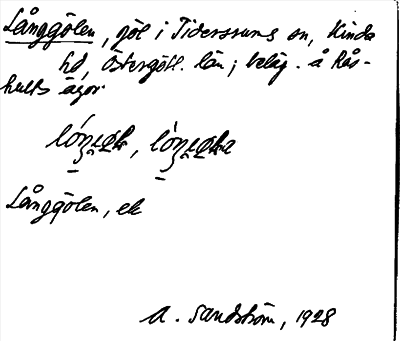 Långgölen, göl i Tidersrums sn, Kinda
hd, Östergötl. län; beläg. å Rås-
hults ägor.
Långgölen, ek
A. Sandström, 1928